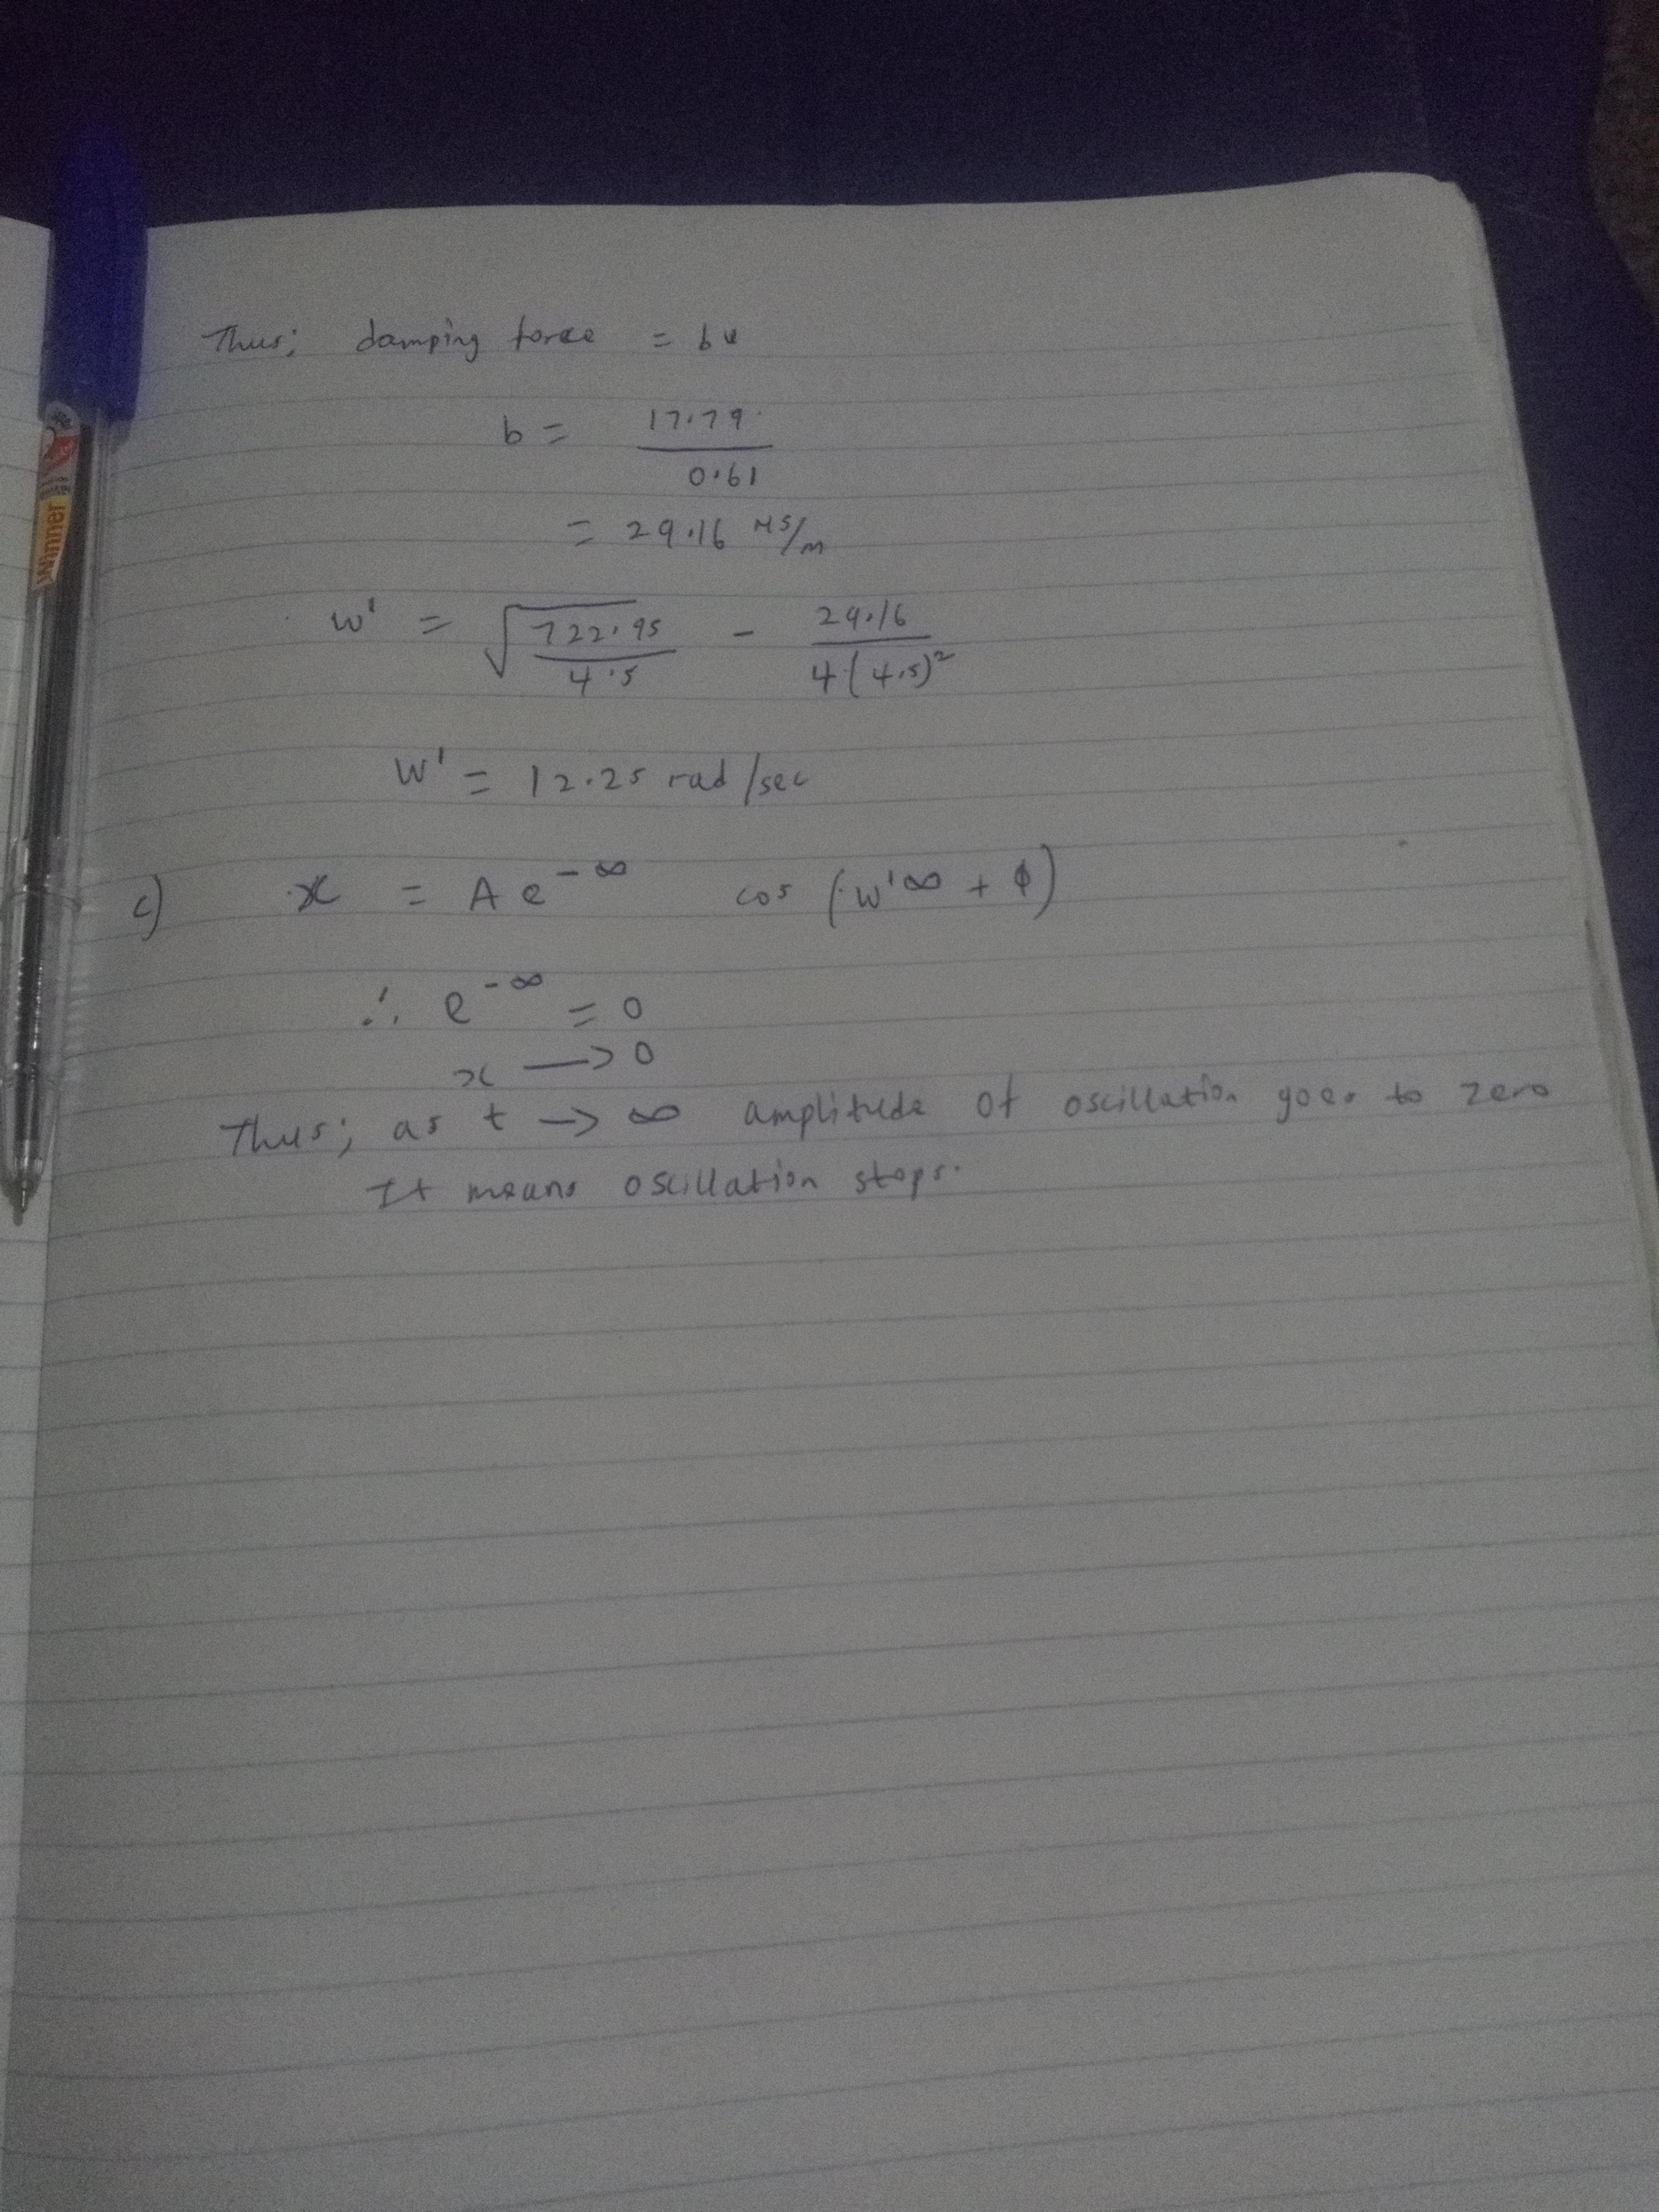 Thus; damping force = bv
b = 17.79 / 0.61
= 29.16 NS/m
w' = √722.95/4.5 - 29.16/4(4.5)²
w' = 12.25 rad/sec
c) x = A e^-∞ cos (w'∞ + φ)
∴ e^-∞ = 0
x → 0
Thus; as t → ∞ amplitude of oscillation goes to zero
It means oscillation stops.
Winner